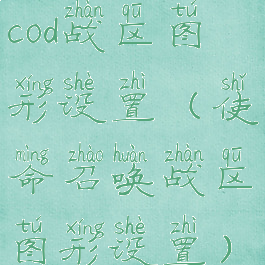 zhàn qū tú
cod战区图
xíng shè zhì shǐ
形设置（使
mìng zhào huàn zhàn qū
命召唤战区
tú xíng shè zhì
图形设置）